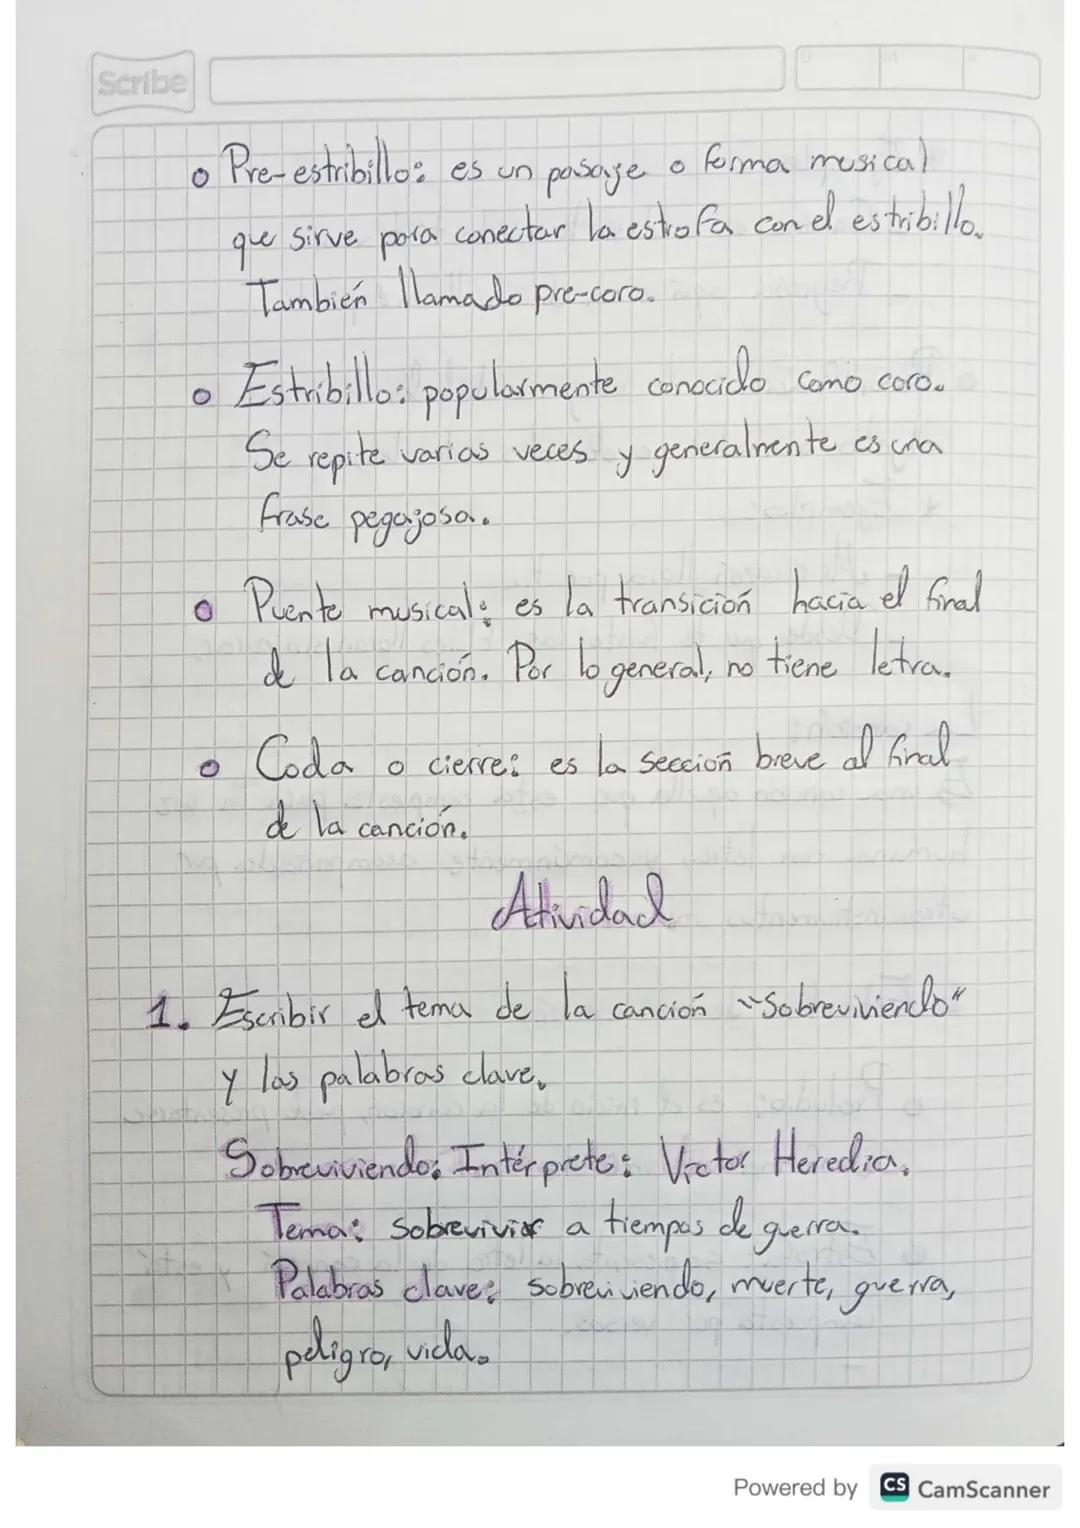 Scribe
Pre-estribillo: es un pasaje o forma musical
que sirve para conectar la estrofa con el estribillo.
También llamado pre-coro.
Estribillo: popularmente conocido como coro.
Se repite varias veces y generalmente es una
frase pegajosa.
Puente musical: es la transición hacia el final
de la canción. Por lo general, no tiene letra.
Coda o cierre: es la sección breve al final
de la canción.
Atividad
1. Escribir el tema de la canción "Sobreviviendo"
y las palabras clave.
Sobreviviendo: Intérprete: Víctor Heredia.
Tema: Sobrevivir a tiempos de guerra.
Palabras clave: sobreviviendo, muerte, guerra,
peligro, vida.
Powered by CS CamScanner